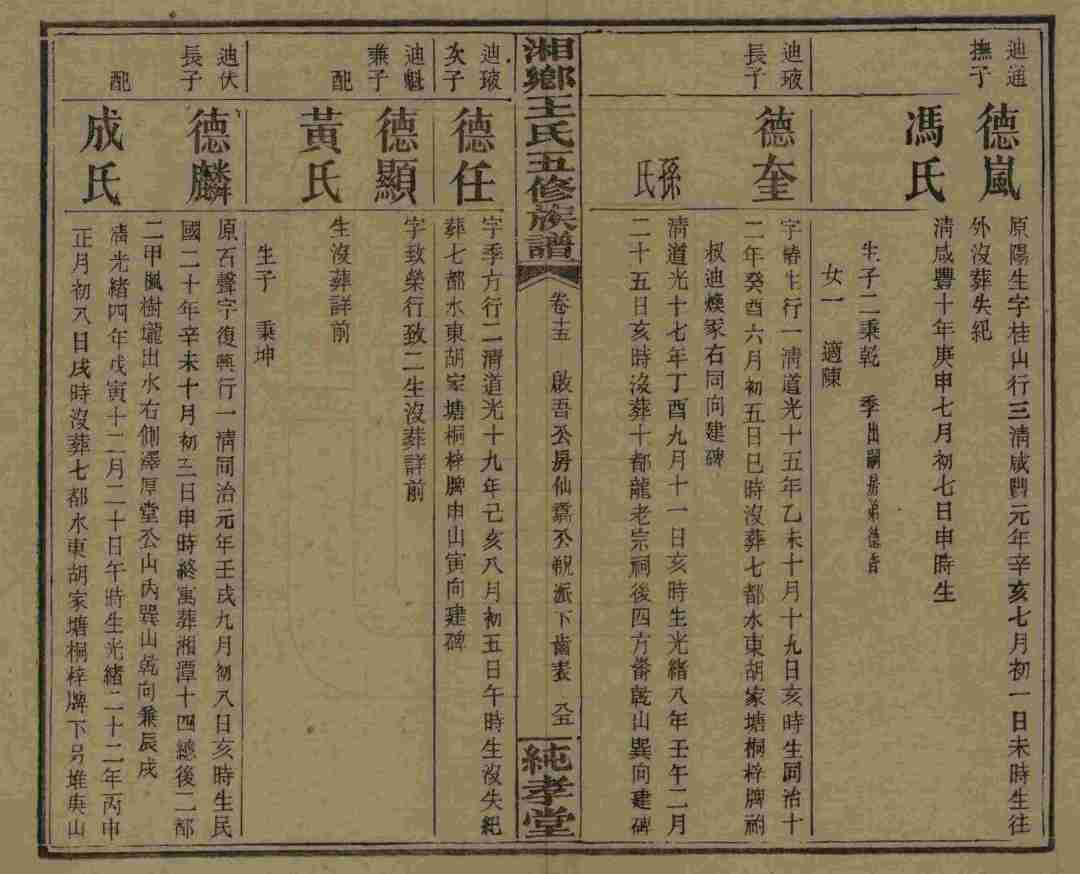 迪通
撫子
德嵐
原陽生字桂山行三清咸豐元年辛亥七月初一日未時生往
外沒葬失紀
馮氏
清咸豐十年庚申七月初七日申時生
生子二秉乾 季出嗣弟德
女一 適陳
迪玻
長子
德奎
字椿生行一清道光十五年乙未十月十九日亥時生同治十
二年癸酉六月初五日巳時沒葬七都水東胡家塘桐梓牌祔
叔迪煥冢右同向建碑
孫氏
清道光十七年丁酉九月十一日亥時生光緒八年壬午二月
二十五日亥時沒葬十都龍老宗祠後四方畨乾山巽向建碑
湘鄉王氏五修族譜
卷十五
啟吾公房仙齋公覞派下齒表
八五
純孝堂
迪玻
次子
德任
字季方行二清道光十九年己亥八月初五日午時生沒失紀
葬七都水東胡家塘桐梓牌申山寅向建碑
迪魁
兼子
德顯
字致榮行致二生沒葬詳前
配
黃氏
生沒葬詳前
生子 秉坤
迪伏
長子
德麟
原名石聲字復興行一清同治元年壬戌九月初八日亥時生民
國二十年辛未十月初三日申時終寓葬湘潭十四總後二都
二甲楓樹壠出水右側澤厚堂公山內巽山乾向兼辰戌
配
成氏
清光緒四年戊寅十二月二十日午時生光緒二十二年丙申
正月初八日戌時沒葬七都水東胡家塘桐梓牌下另堆輿山